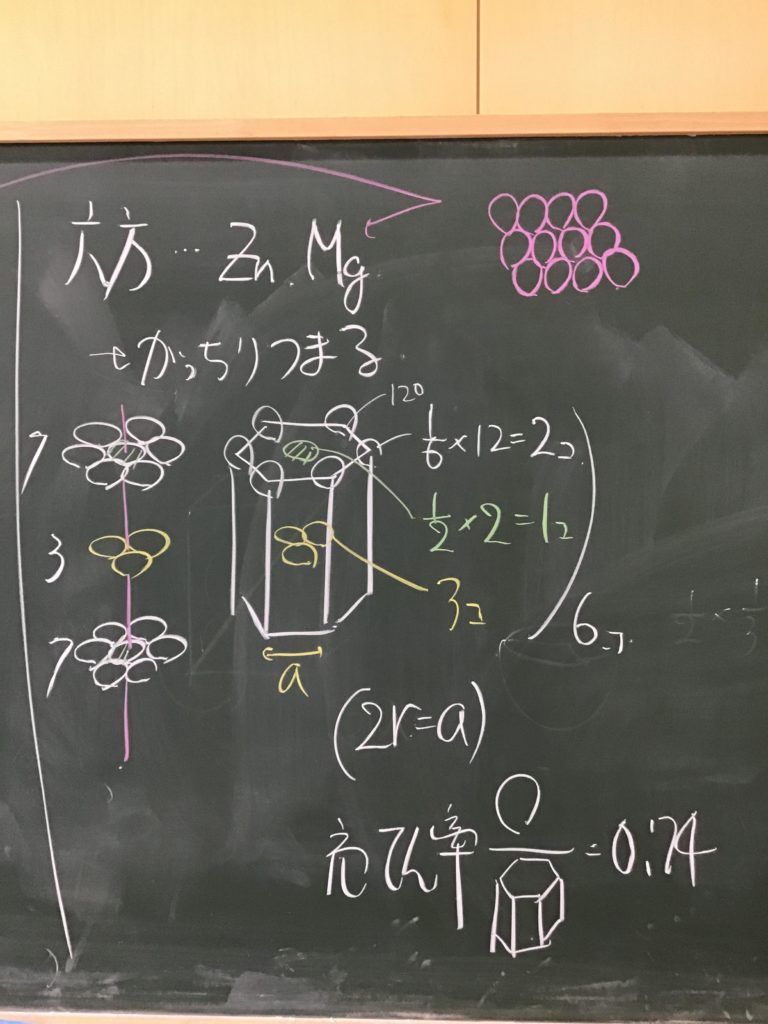 六方…Zn. Mg
→がっちりつまる
120
7
1/6×12=2コ
1/2×2=1コ
3
3コ
7
6コ
a
(2r=a)
充てん率 =0.74